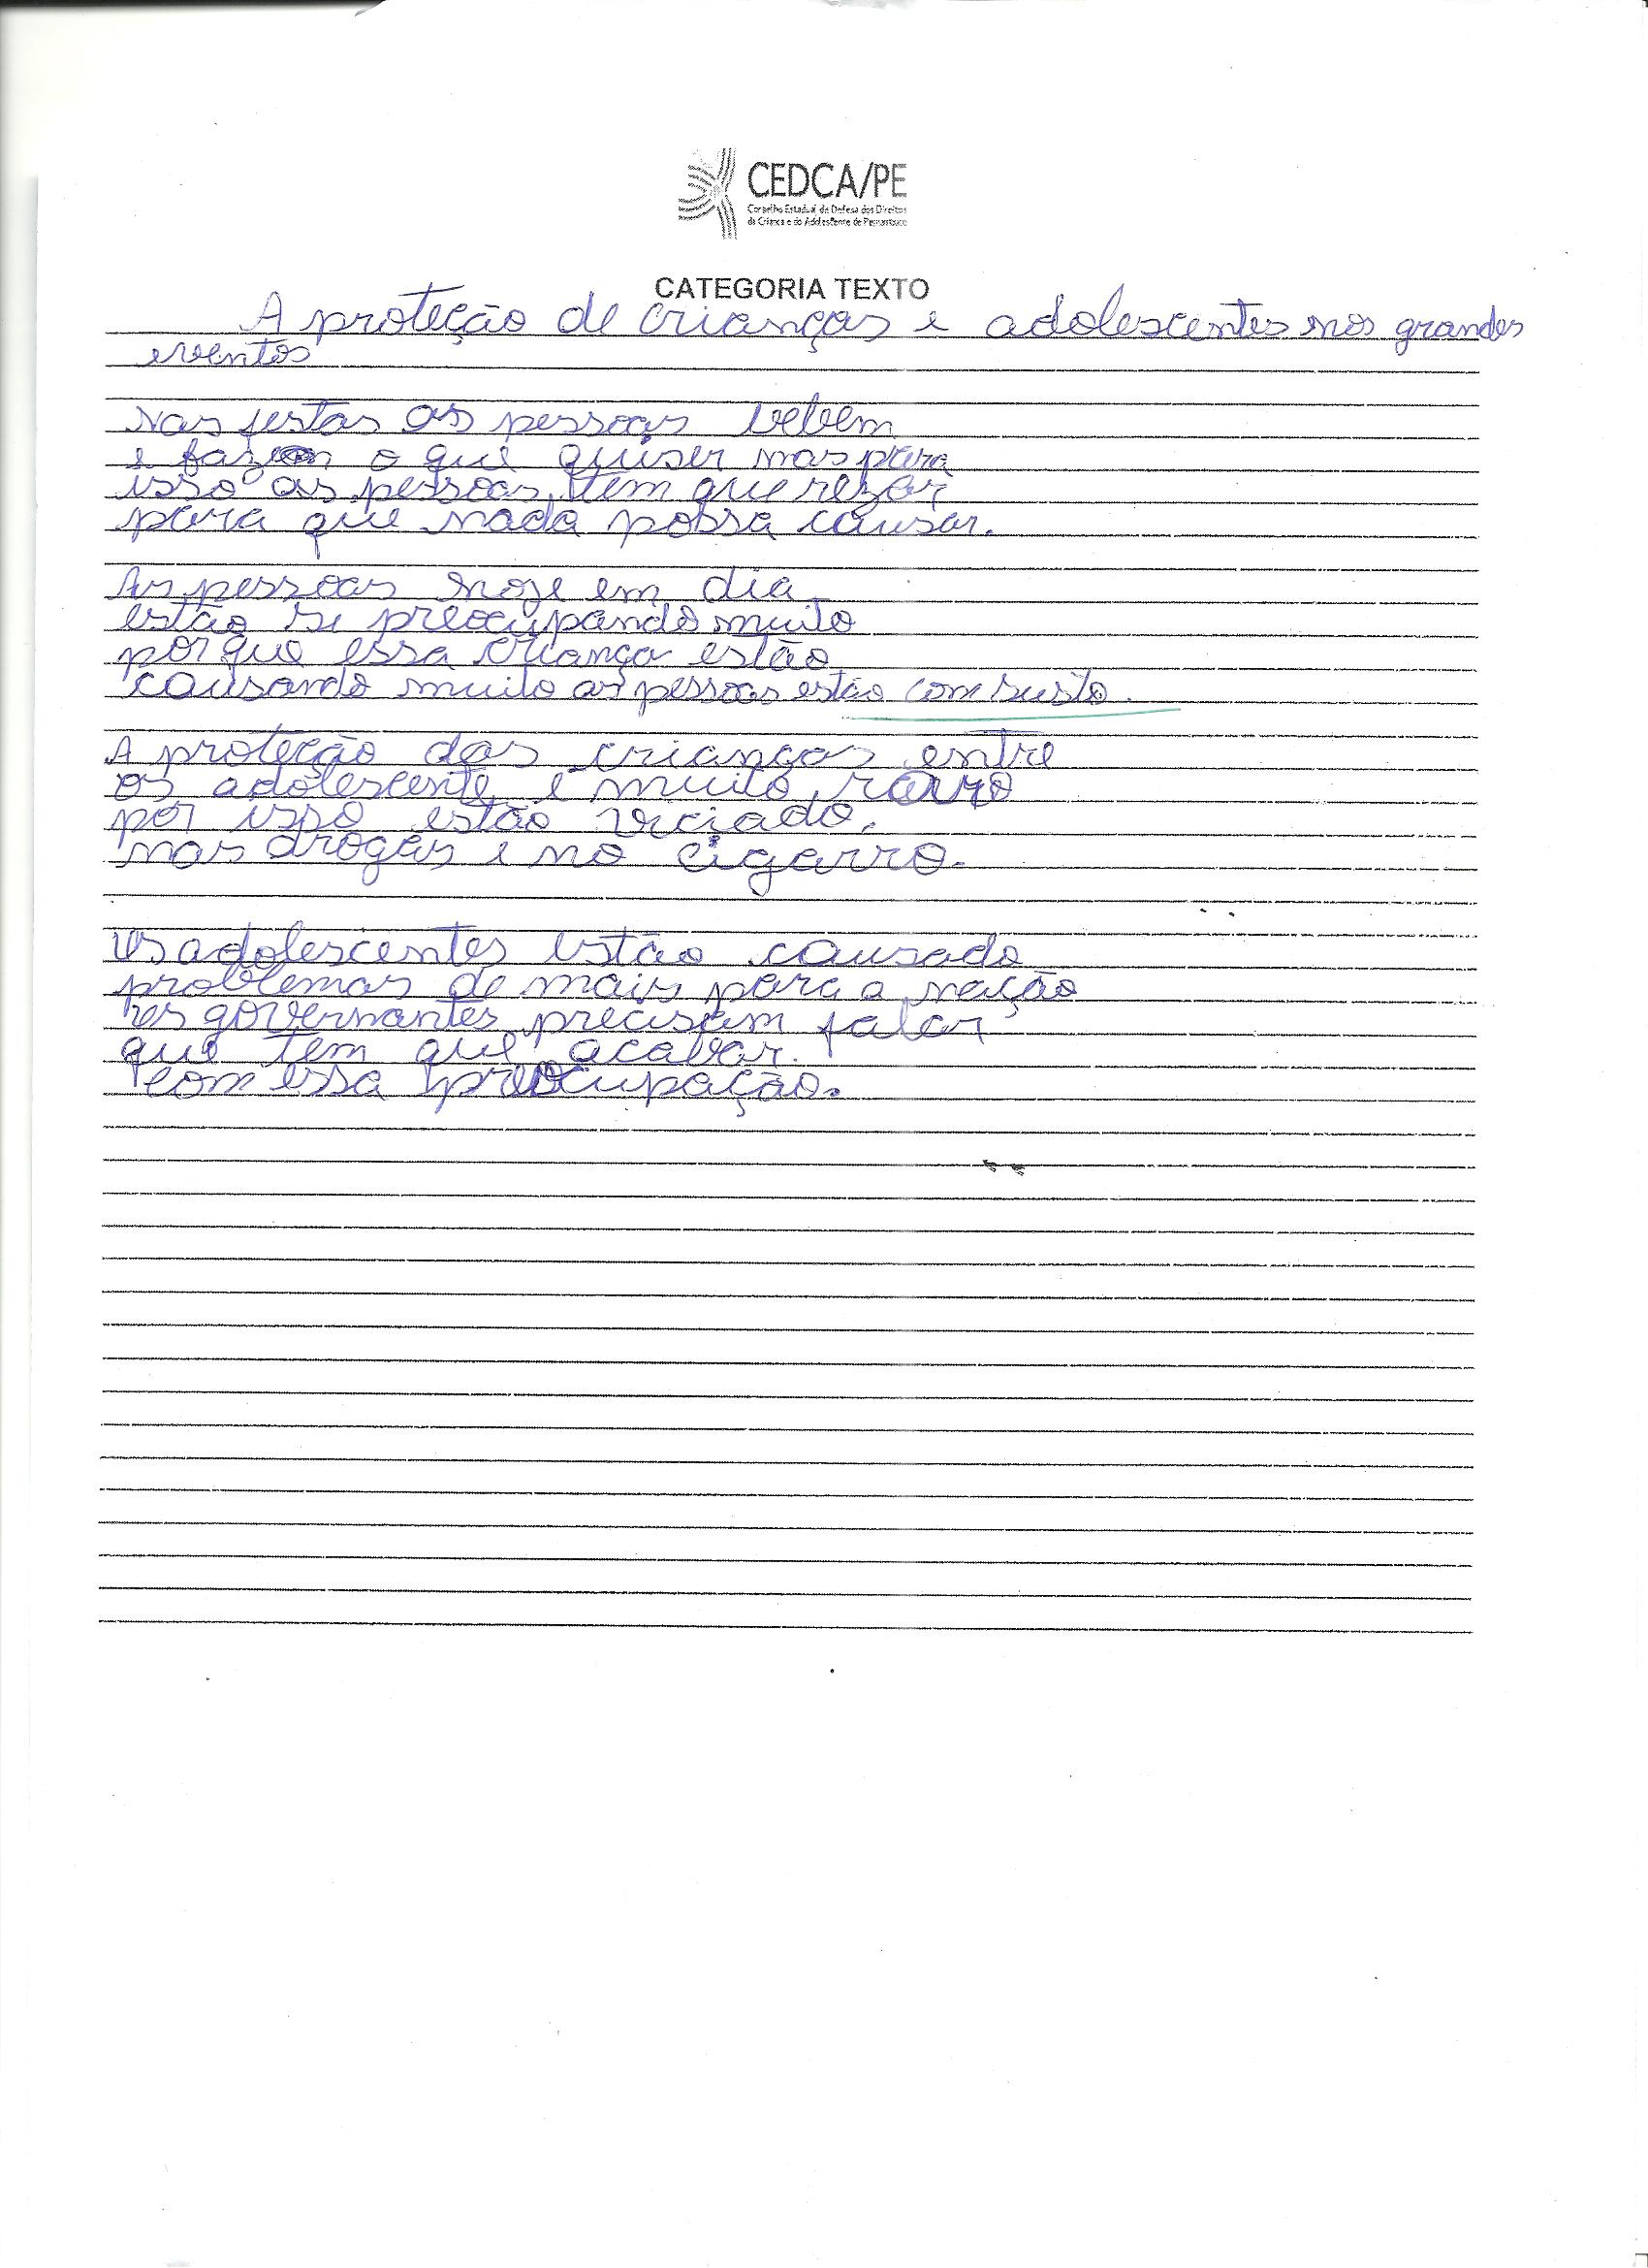 CEDCA/PE
Conselho Estadual de Defesa dos Direitos
da Criança e do Adolescente de Pernambuco
CATEGORIA TEXTO
A proteção de crianças e adolescentes nos grandes
eventos
Nas festas as pessoas bebem
e fazem o que quiser mas para
isso as pessoas tem que rezar
para que nada possa causar.
As pessoas hoje em dia
estão se preocupando muito
porque essa criança estão
causando muito as pessoas estão com susto.
A proteção das crianças entre
os adolescente e muito rarro
por isso estão viciado.
nas drogas e no cigarro.
Os adolescentes estão causado
problemas de mais para a nação
os governantes precisam falar
que tem que acabar.
com essa preocupação.